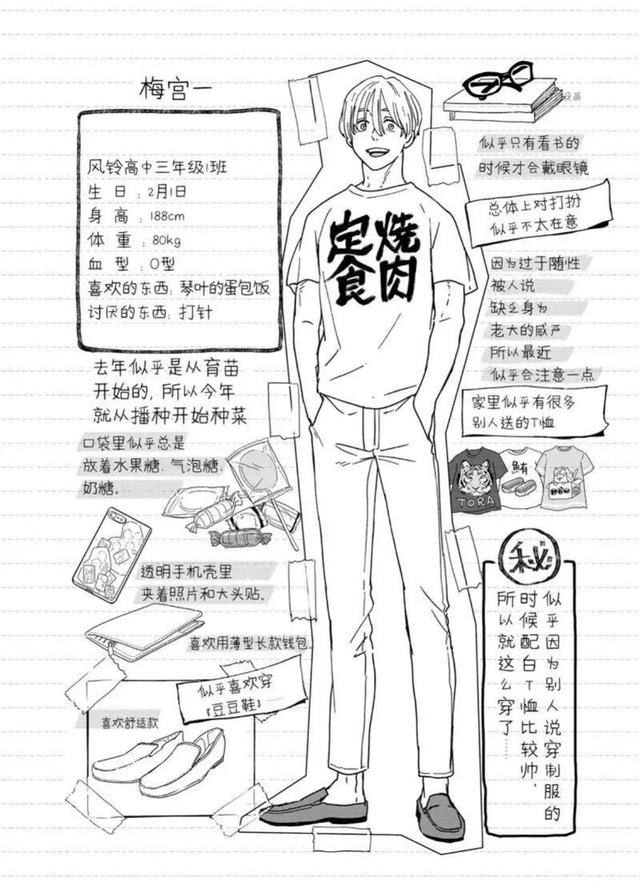 梅宫一
风铃高中三年级1班
生 日：2月1日
身 高：188cm
体 重：80kg
血 型：O型
喜欢的东西：琴叶的蛋包饭
讨厌的东西：打针
去年似乎是从育苗
开始的，所以今年
就从播种开始种菜
口袋里似乎总是
放着水果糖、气泡糖、
奶糖。
透明手机壳里
夹着照片和大头贴。
喜欢用薄型长款钱包
似乎喜欢穿
『豆豆鞋』……
喜欢舒适款
烧肉
定食
漫画
似乎只有看书的
时候才会戴眼镜
总体上对打扮
似乎不太在意
因为过于随性
被人说
缺乏身为
老大的威严
所以最近
似乎会注意一点
家里似乎有很多
别人送的T恤
TORA
鮪
秘
似乎因为别人说穿制服的
时候配白T恤比较帅，
所以就这么穿了……